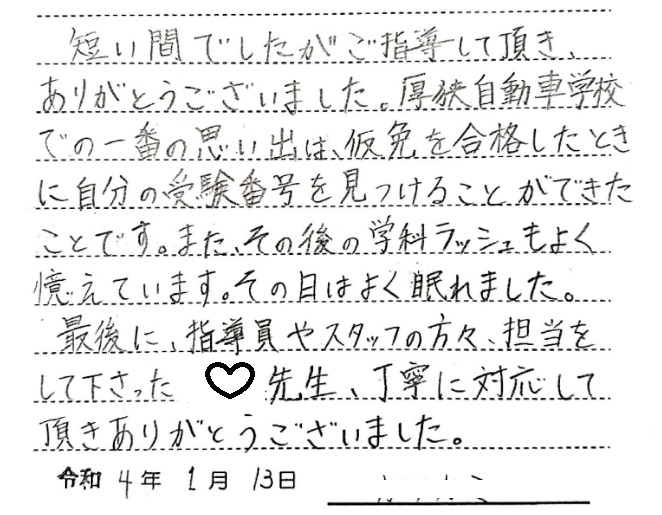 短い間でしたがご指導して頂き、
ありがとうございました。厚狭自動車学校
での一番の思い出は、仮免を合格したとき
に自分の受験番号を見つけることができた
ことです。また、その後の学科ラッシュもよく
憶えています。その日はよく眠れました。
最後に、指導員やスタッフの方々、担当を
して下さった ♡先生、丁寧に対応して
頂きありがとうございました。
令和 4年 1月 13日